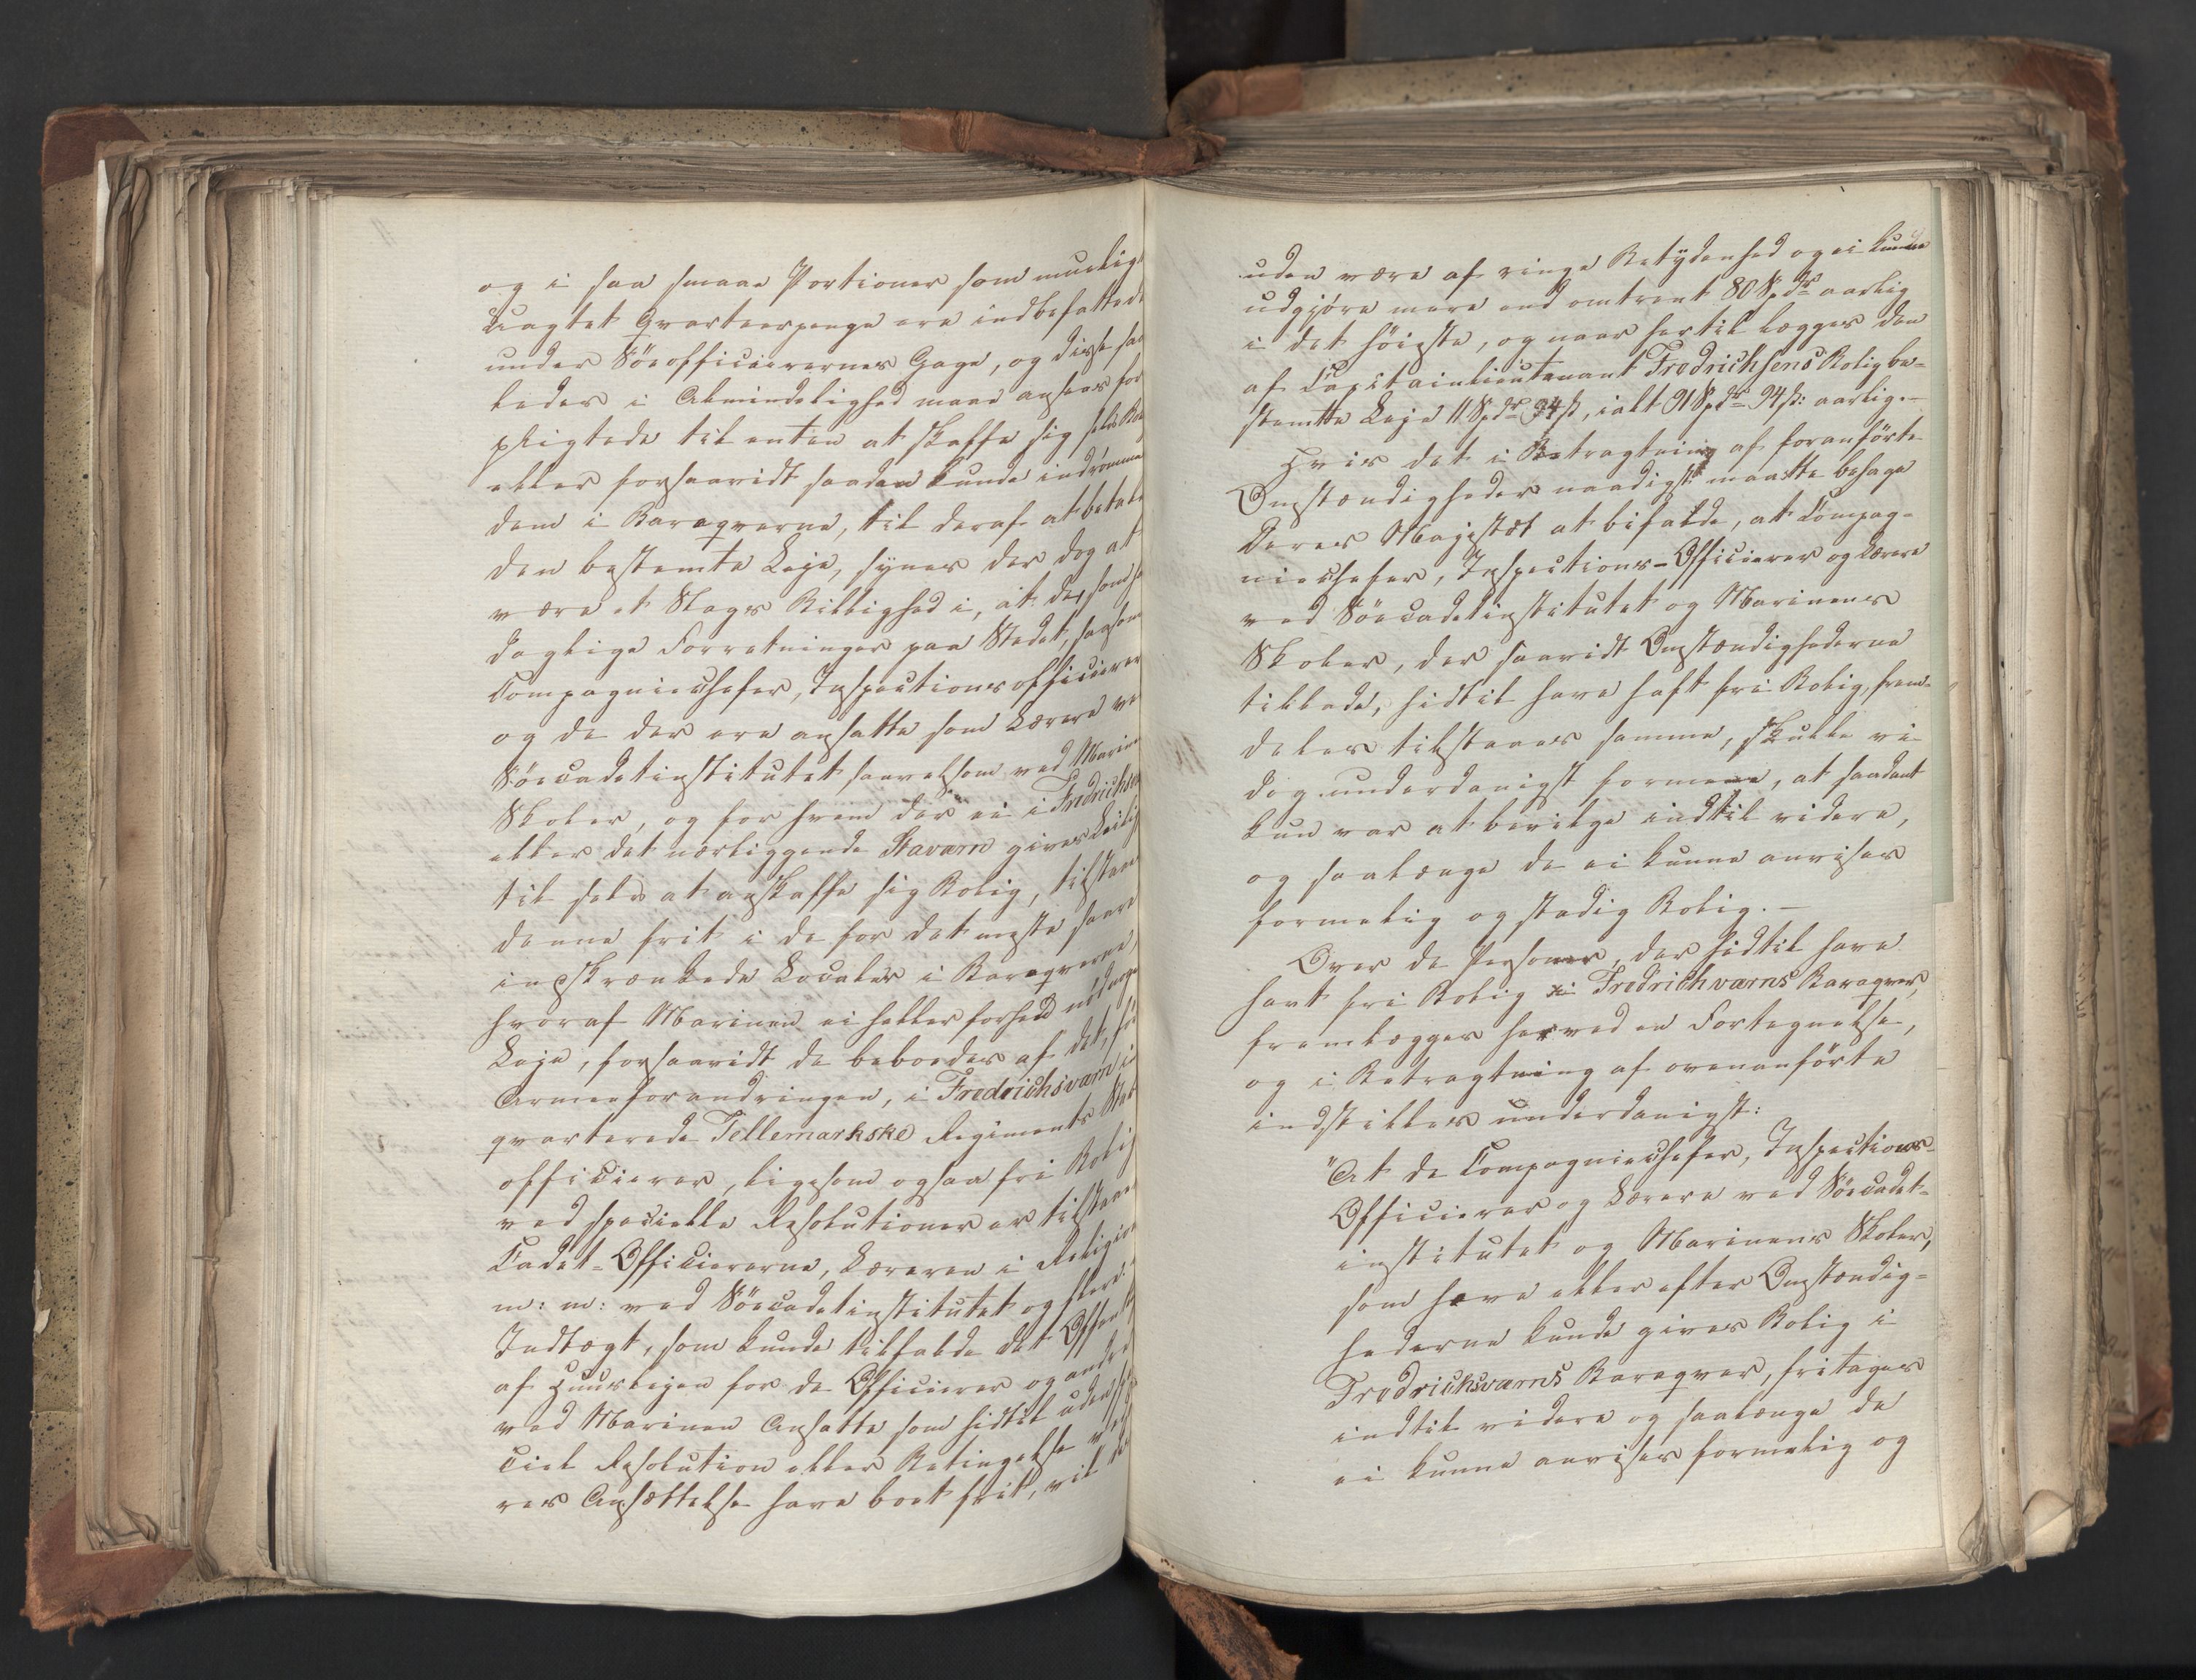 og i saa smaae Portioner som muelig
Uagtet Qvarteerpenge ere indbefattede
under Söeofficierernes Gage, og disse saa
ledes i Almindelighed maae ansees for
pligtede til enten at skaffe sig selv
eller forsaavidt saadan kunde indrömmes
dem i Baraqverne, til deraf at betale
den bestemte Leje, synes der dog at
være et Slags Billighed i, at de, som
daglige Forretninger paa Stedet, saasom
Compagniechefer, Inspectionsofficierer
og de der ere ansatte som Lærere ved
Söecadetinstitutet saavelsom ved Marine
Skoler, og for hvem der ei i Fredrichs
eller det nærliggende Staværn gives Leilig
til selv at anskaffe sig Bolig, tilstaaes
denne frit i de for det meste saare
inskrænkede Locales i Baraqverne,
hvoraf Marinen ei heller forhen nöd nogen
Leje, forsaavidt de beboedes af det, för
Armeeforandringen, i Fredrichsværn ind
qvarterede Tellemarkske Regiments
officierer, ligesom ogsaa fri Bolig
ved specielle Resolutioner er tilstaaet
Cadet-Officiererne, Læreren i Religion
m: m: ved Söecadetinstitutet og flere.
Indtægt, som kunde tilfalde det Offentl
af Huuslejen for de Officierer og andre
ved Marinen Ansatte som hidtil uden spe
ciel Resolution eller Betingelse ved
res Ansættelse have boet frit, vil des
uden være af ringe Betydenhed og ei kunde
udgjöre mere end omtrent 80 Spdr aarlig
i det höieste, og naar hertil lægges den
af Capitainlieutenant Fredrichsens Bolig be-
stemte Leje 11 Spdr 94 ß, ialt 91 Spdr 94 ß: aarlig.-
Hvis det i Betragtning af foranförte
Omstændigheder naadigst maatte behage
Deres Majestæt at bifalde, at Compag-
niechefer, Inspections-Officierer og Lærere
ved Söecadetinstitutet og Marinens
Skoler, der saavidt Omstændighederne
tillode, hidtil have haft fri Bolig, frem-
deles tilstaaes samme, skulle vi
dog underdanigst formene, at saadant
kun var at bevilge indtil videre,
og saalænge de ei kunne anvises
formelig og stadig Bolig.-
Over de Personer, der hidtil have
havt fri Bolig i Fredrichværns Baraqver,
fremlægges herved en Fortegnelse,
og i Betragtning af ovenanförte
indstilles underdanigst:
"At de Compagniechefer, Inspections-
Officierer og Lærere ved Söecadet-
institutet og Marinens Skoler,
som have eller efter Omstændig-
hederne kunde gives Bolig i
Fredrichsværns Baraqver, fritages
indtil videre og saalænge de
ei kunne anvises formelig og